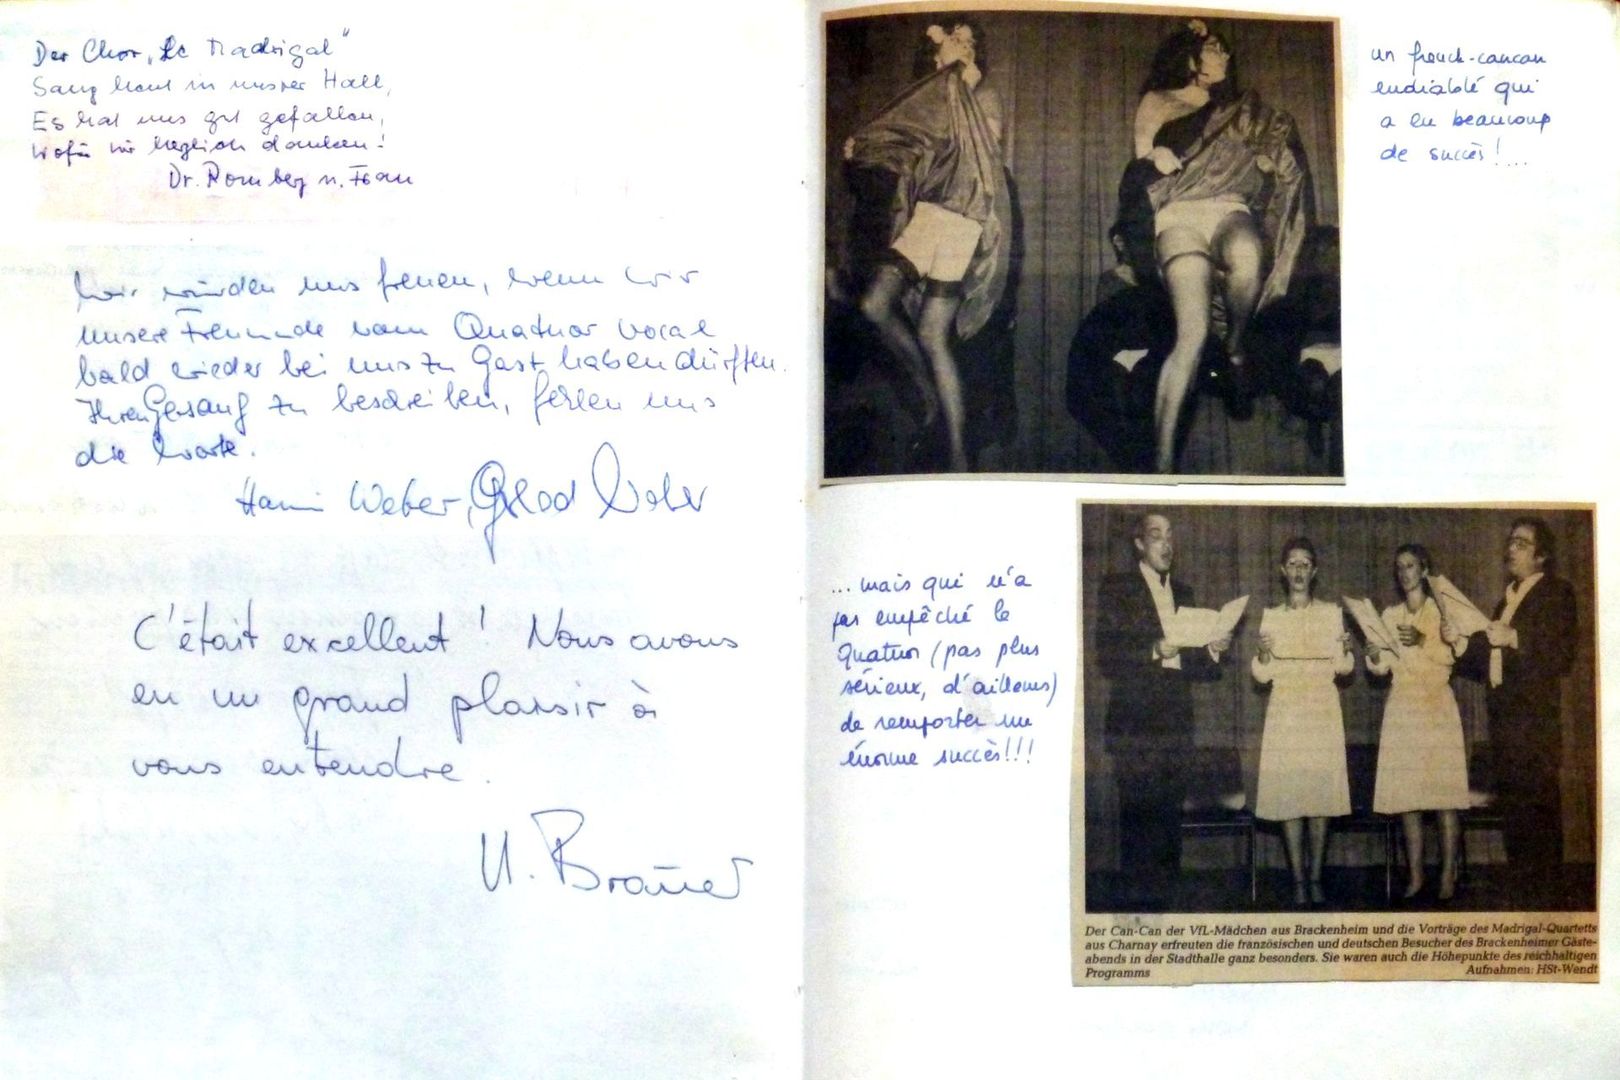 Der Chor „Le Madrigal"
Sang heut in unsrer Hall,
Es hat uns gut gefallen,
wofür wir herzlich danken!
Dr. Romberg u. Frau
Wir würden uns freuen, wenn wir
unsere Freunde vom Quatuor vocal
bald wieder bei uns zu Gast haben dürften.
Ihren Gesang zu beschreiben, fehlen uns
die Worte.
Weber,
C'était excellent ! Nous avons
eu un grand plaisir à
vous entendre.
un french-cancan
endiablé qui
a eu beaucoup
de succès !...
...mais qui n'a
pas empêché le
Quatuor (pas plus
sérieux, d'ailleurs)
de remporter un
énorme succès!!!
Der Can-Can der VfL-Mädchen aus Brackenheim und die Vorträge des Madrigal-Quartetts
aus Charnay erfreuten die französischen und deutschen Besucher des Brackenheimer Gäste-
abends in der Stadthalle ganz besonders. Sie waren auch die Höhepunkte des reichhaltigen
Programms Aufnahmen: HSt-Wendt